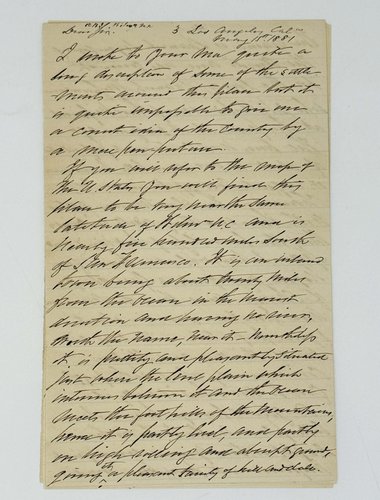 Dear Jim. 3 Los Angeles Cal
May 1st 1881
I wrote to your Ma quite a
long description of some of the settle
ments around this place but it
is quite impossible to give one
a correct idea of the Country by
a mere pen picture
If you will refer to the map of
the U. States you will find this
place to be very near the same
latitude of N.C. and is
nearly five hundred miles South
of San Francisco. It is an inland
town being about twenty miles
from the ocean in the nearest
direction and having no river,
worth the name, near it - Nonetheless
it is prettily and pleasantly situated
just where the level plain which
between it and the Ocean
meets the foot hills of the mountains,
it is partly level, and partly
on high rolling and abrupt ground,
giving it a pleasant variety of hill and dale.